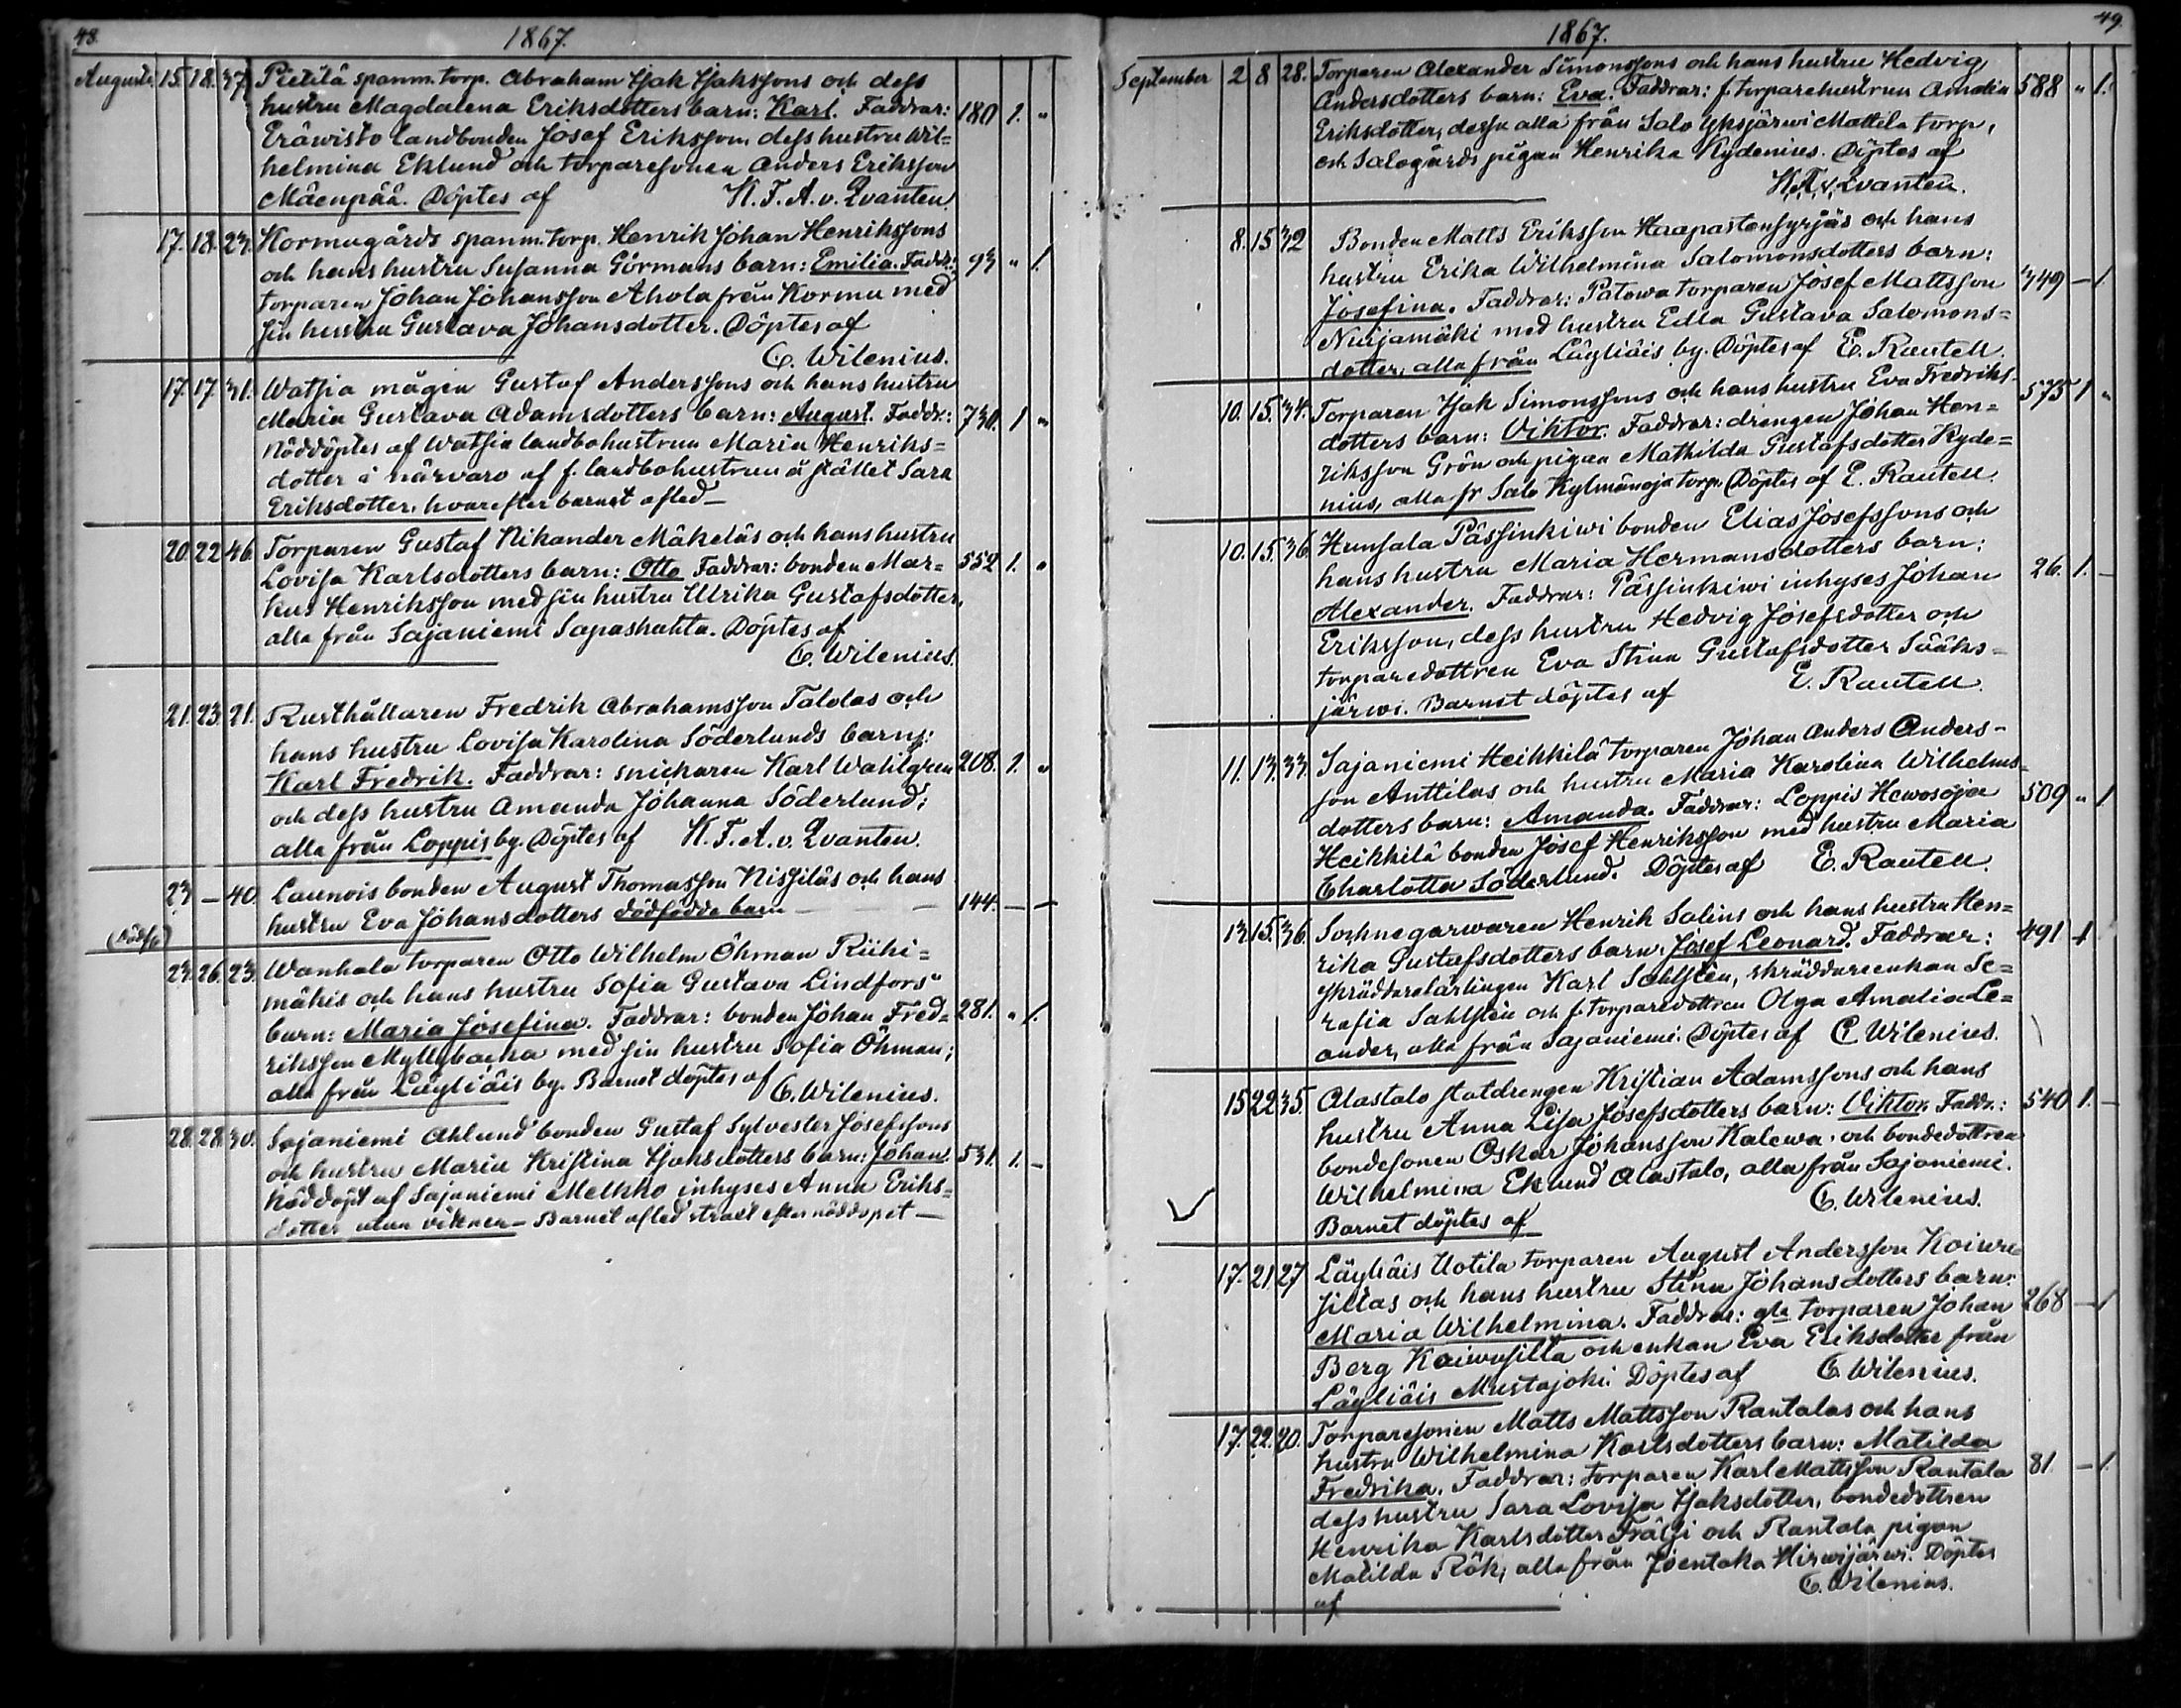 48.
1867.
Augusti. 15. 18. 37. Pietilä spanm. torp. Abraham Isak Isakssons och dess
hustru Magdalena Eriksdotters barn: Karl. Faddrar: 180 1. "
Eräwisto landbonden Josef Eriksson, dess hustru Wil=
helmina Eklund och torparesonen Anders Eriksson
Mäenpää. Döptes af K. F. A. v. Qvanten.
17. 18. 23. Kormugårds spanm. torp. Henrik Johan Henrikssons
och hans hustru Susanna Görmans barn: Emilia. Faddr.: 93 " 1.
torparen Johan Johansson Ahola från Kormu med
sin hustru Gustava Johansdotter. Döptes af
C. Wilenius.
17. 17. 31. Watsia mågen Gustaf Anderssons och hans hustru
Maria Gustava Adamsdotters barn: August. Faddr.: 730. 1 "
Nöddöptes af Watsia landbohustrun Maria Henriks=
dotter i närvaro af f. landbohustrun å stället Sara
Eriksdotter, hvarefter barnet afled —
20. 22 46. Torparen Gustaf Nikander Mäkeläs och hans hustru
Lovisa Karlsdotters barn: Otto Faddrar: bonden Mar= 552 1. "
kus Henriksson med sin hustru Ulrika Gustafsdotter,
alla från Sajaniemi Sapashuhta. Döptes af
C. Wilenius.
21. 23. 21. Rusthållaren Fredrik Abrahamsson Talolas och
hans hustru Lovisa Karolina Söderlunds barn:
Karl Fredrik. Faddrar: snickaren Karl Wahlgren 208. 1. "
och dess hustru Amanda Johanna Söderlund;
alla från Loppis by. Döptes af K. F. A. v. Qvanten.
23 — 40. Launois bonden August Thomasson Nissiläs och hans
hustru Eva Johansdotters dödfödda barn — — — 144. — —
23. 26. 23. Wanhala torparen Otto Wilhelm Öhman Riihi=
mäkis och hans hustru Sofia Gustava Lindfors
barn: Maria Josefina. Faddrar: bonden Johan Fred= 281. " 1.
riksson Myllybacka med sin hustru Sofia Öhman;
alla från Läyliäis by. Barnet döptes af C. Wilenius.
28. 28. 30. Sajaniemi Ahlund bonden Gustaf Sylvester Josefssons
och hustru Maria Kristina Isaksdotters barn: Johan 531. 1. —
Nöddöpt af Sajaniemi Melkko inhyses Anna Eriks=
dotter utan vittnen — Barnet afled strax efter nöddopet —
49.
1867.
September 2 8 28. Torparen Alexander Simonssons och hans hustru Hedvig
Andersdotters barn: Eva. Faddrar: f. torparehustrun Amalia 588 " 1.
Eriksdotter, dessa alla från Salo Yksjärwi Mattila torp,
och Salogårds pigan Henrika Kydenius. Döptes af
K. F. A. v. Qvanten.
8. 15 32 Bonden Matts Eriksson Haapastensyrjäs och hans
hustru Erika Wilhelmina Salomonsdotters barn:
Josefina. Faddrar: Patowa torparen Josef Mattsson 349 — 1.
Nuijamäki med hustru Edla Gustava Salomons=
dotter, alla från Läyliäis by. Döptes af E. Rautell.
10. 15. 34. Torparen Isak Simonssons och hans hustru Eva Fredriks- 575 1 "
dotters barn: Viktor. Faddrar: drengen Johan Hen=
riksson Grön och pigan Mathilda Gustafsdotter Kyde=
nius, alla fr Salo Kylmänoja torp. Döptes af E. Rautell.
10. 15. 36. Hunsala Pässinkiwi bonden Elias Josefssons och
hans hustru Maria Hermansdotters barn: 26. 1. —
Alexander. Faddrar: Pässinkiwi inhyses Johan
Eriksson, dess hustru Hedvig Josefsdotter och
torparedottren Eva Stina Gustafsdotter Sääks=
järwi. Barnet döptes af E. Rautell.
11. 13. 33. Sajaniemi Heikkilä torparen Johan Anders Anders-
son Anttilas och hustru Maria Karolina Wilhelms=
dotters barn: Amanda. Faddrar: Loppis Hewosoja 509 " 1
Heikkilä bonden Josef Henriksson med hustru Maria
Charlotta Söderlund. Döptes af E. Rautell.
13. 15. 36. Socknegarwaren Henrik Salins och hans hustru Hen= 491 1
rika Gustafsdotters barn: Josef Leonard. Faddrar:
skräddarelärlingen Karl Sahlstén, skräddareenkan Se=
rafia Sahlstén och f. torparedottren Olga Amalia Le=
ander, alla från Sajaniemi. Döptes af C. Wilenius.
15 22 35. Alastalo statdrengen Kristian Adamssons och hans
hustru Anna Lisa Josefsdotters barn: Viktor. Faddr.: 540 1. —
bondesonen Oskar Johansson Kalewa och bondedottren
Wilhelmina Eklund Alastalo, alla från Sajaniemi.
Barnet döptes af C. Wilenius.
17. 21 27 Läyliäis Uotila torparen August Andersson Koiwu=
sillas och hans hustru Stina Johansdotters barn:
Maria Wilhelmina. Faddrar: gla torparen Johan 268 — 1
Berg Koiwusilta och enkan Eva Eriksdotter från
Läyliäis Mustajoki. Döptes af C. Wilenius.
17. 22. 20. Torparesonen Matts Mattsson Rantalas och hans
hustru Wilhelmina Karlsdotters barn: Matilda
Fredrika. Faddrar: torparen Karl Mattsson Rantala 81 — 1.
dess hustru Sara Lovisa Isaksdotter, bondedottren
Henrika Karlsdotter Frälsi och Rantala pigan
Matilda Rök, alla från Joentaka Hirwijärwi. Döptes
af C. Wilenius.